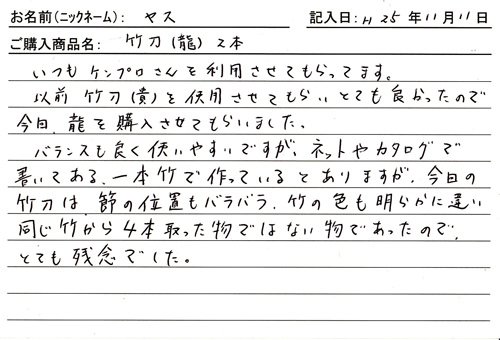 お名前(ニックネーム): ヤス 記入日: H 25 年 11 月 11 日
ご購入商品名: 竹刀(龍) 2本
いつも ケンプロさんを利用させてもらってます。
以前 竹刀(貴)を使用させてもらい とても良かったので
今日、龍を購入させてもらいました、
バランスも良く使いやすいですが、ネットやカタログで
書いてある、一本竹で作っているとありますが、今日の
竹刀は、節の位置もバラバラ、竹の色も明らかに違い
同じ竹から4本取った物ではない物であったので、
とても残念でした。